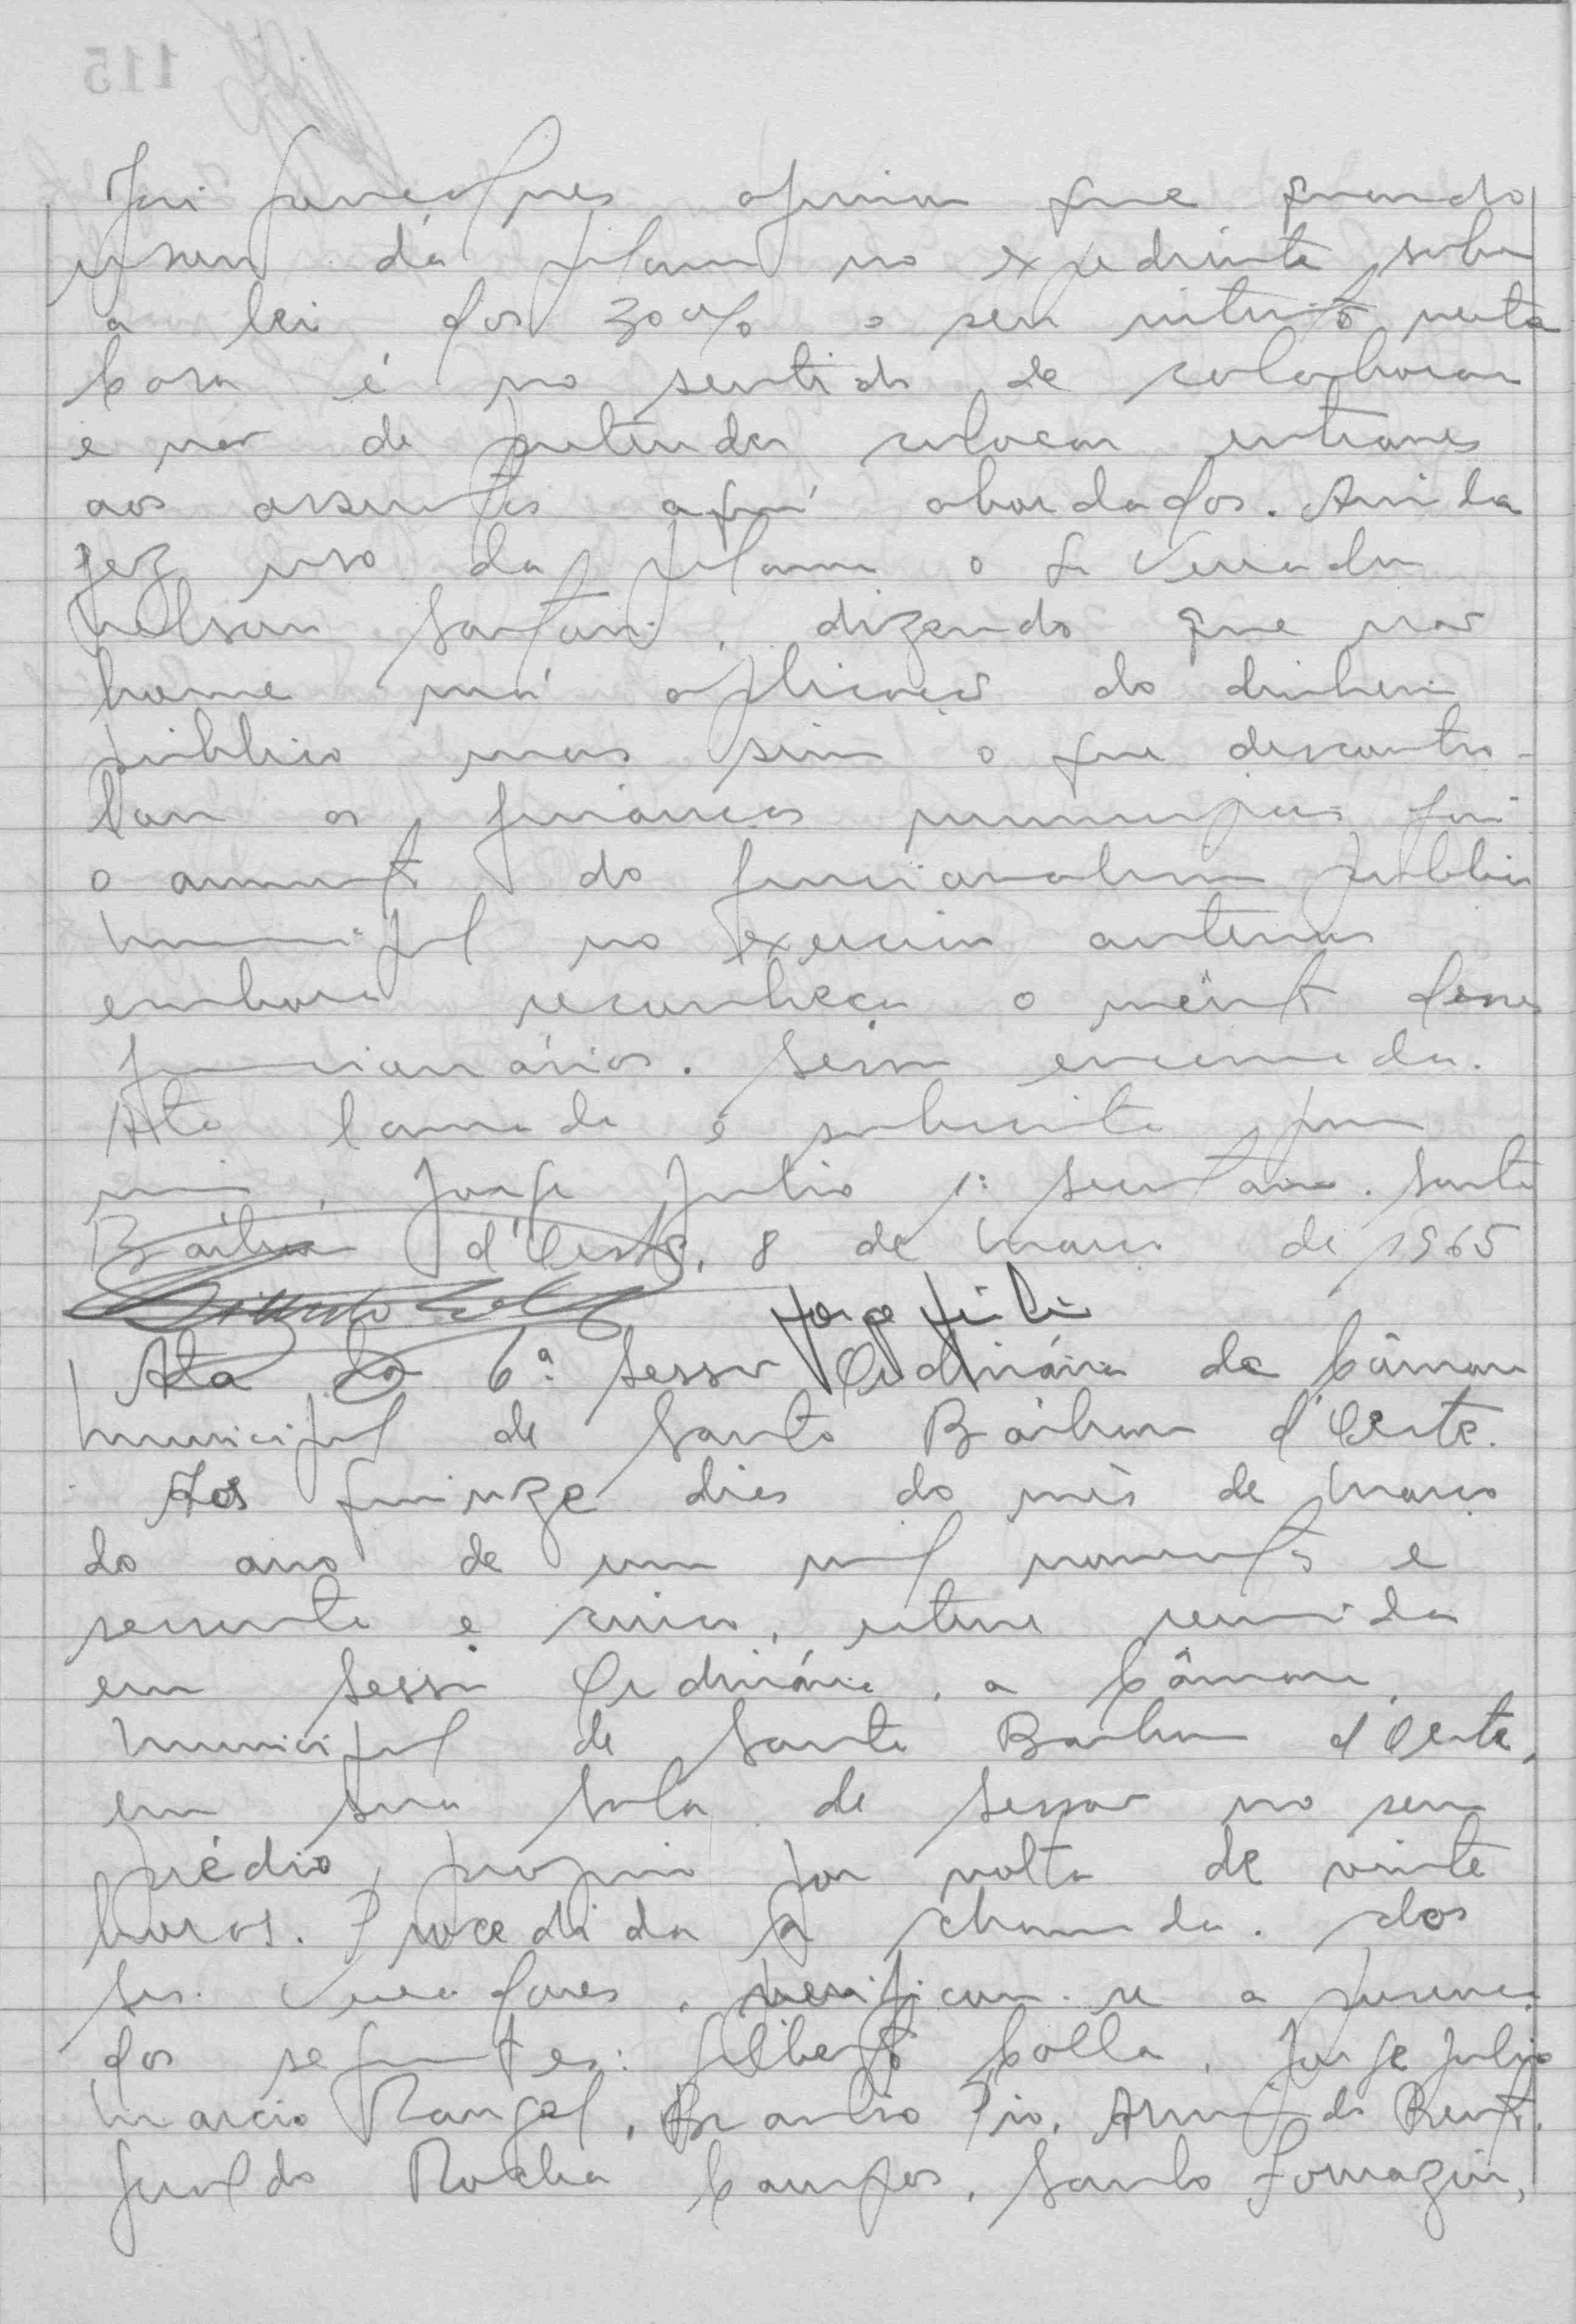 opinou que quando
usara da palavra no expediente sobre
a lei dos 30% o seu intuito nesta
Casa é no sentido de colaborar
e não de pretender colocar entraves
aos assuntos aquí abordados. Ainda
fez uso da palavra o Sr Vereador
Nelson dizendo que não
houve má aplicação do dinheiro
público mas sim o que descontro-
lou as finanças municipais foi
o aumento do funcionalismo público
Municipal no exercicio anterior
embora reconheça o mérito desses
funcionários. Sessão encerrada.
Ata lavrada e subscrita por
mim, Jorge Julio 1º Secretário. Santa
Bárbara d'Oeste, 8 de Março de 1965
Jorge Júlio
Ata da 6ª Sessão Ordinária da Câmara
Municipal de Santa Bárbara d'Oeste.
Aos quinze dias do mês de Março
do ano de um mil novecentos e
sessenta e cinco, esteve reunida
em Sessão Ordinária, a Câmara
Municipal de Santa Barbara d'Oeste,
em sua Sala de Sessão no seu
prédio próprio por volta de vinte
horas. Procedida a chamada dos
Srs. Vereadores, verificou-se a presença
dos seguintes: Gilberto Colla, Jorge Julio
Marcio Rangel, Braulio Pio, Armindo
Geraldo Rocha Campos, Santo Tomazin,